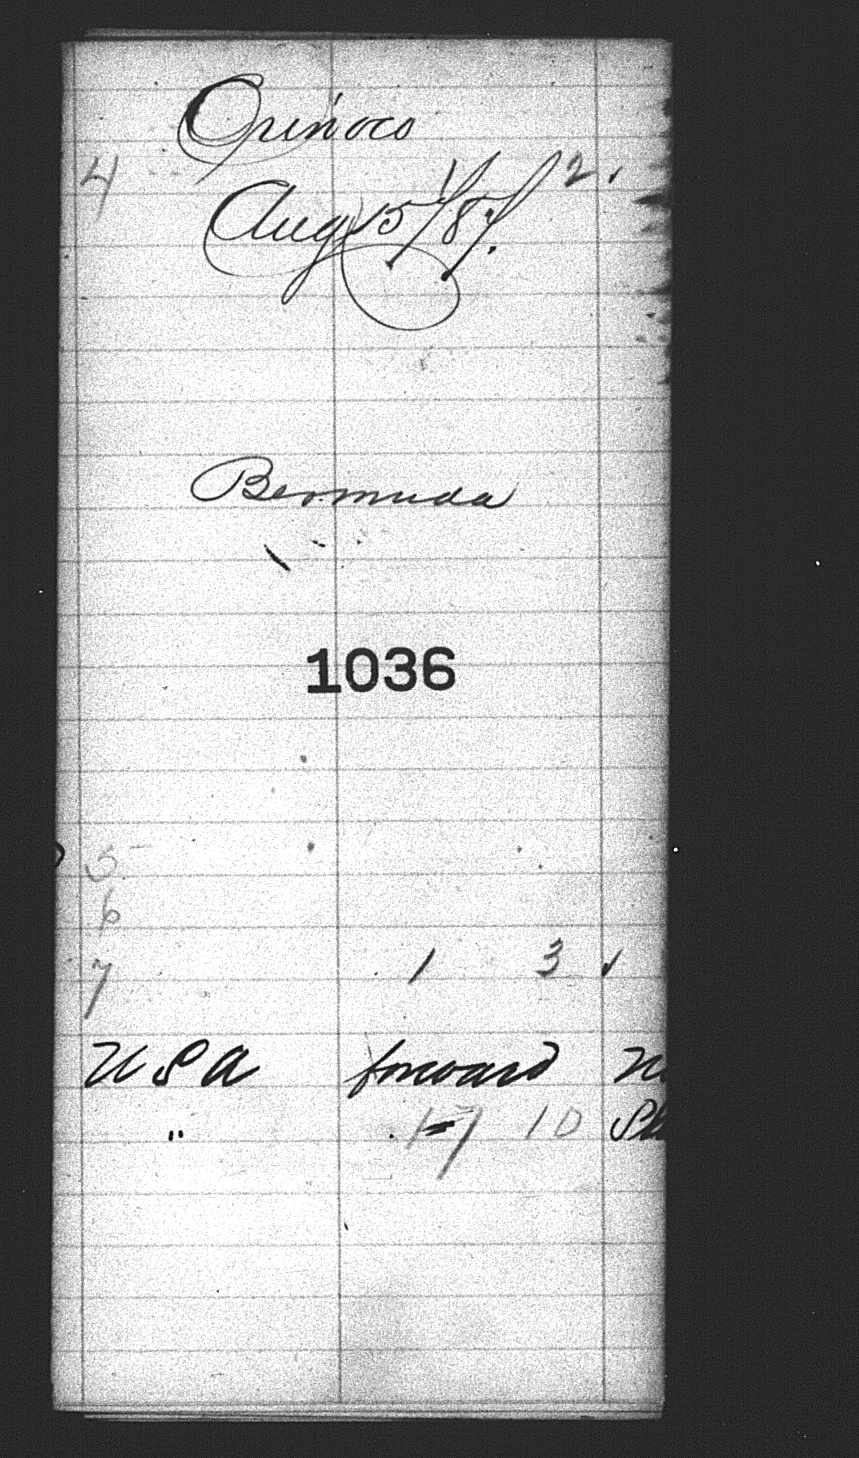 Orinoco
4 2.
Aug 15/87.
Bermuda
1036
5
6
7 1 3 ✓
USA forward
" 17 10